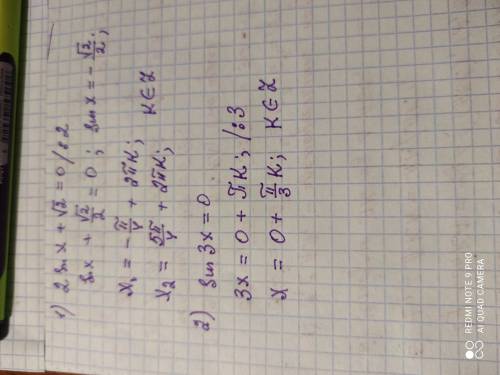 1) 2 sin x + √2 = 0 / : 2
sin x + √2/2 = 0 ; sin x = - √2/2 ;
x₁ = - π/4 + 2πk ;
x₂ = 5π/4 + 2πk ; k ∈ Z
2) sin 3x = 0
3x = 0 + πk ; / : 3
x = 0 + π/3 k ; k ∈ Z
REDMI NOTE 9 PRO
AI QUAD CAMERA